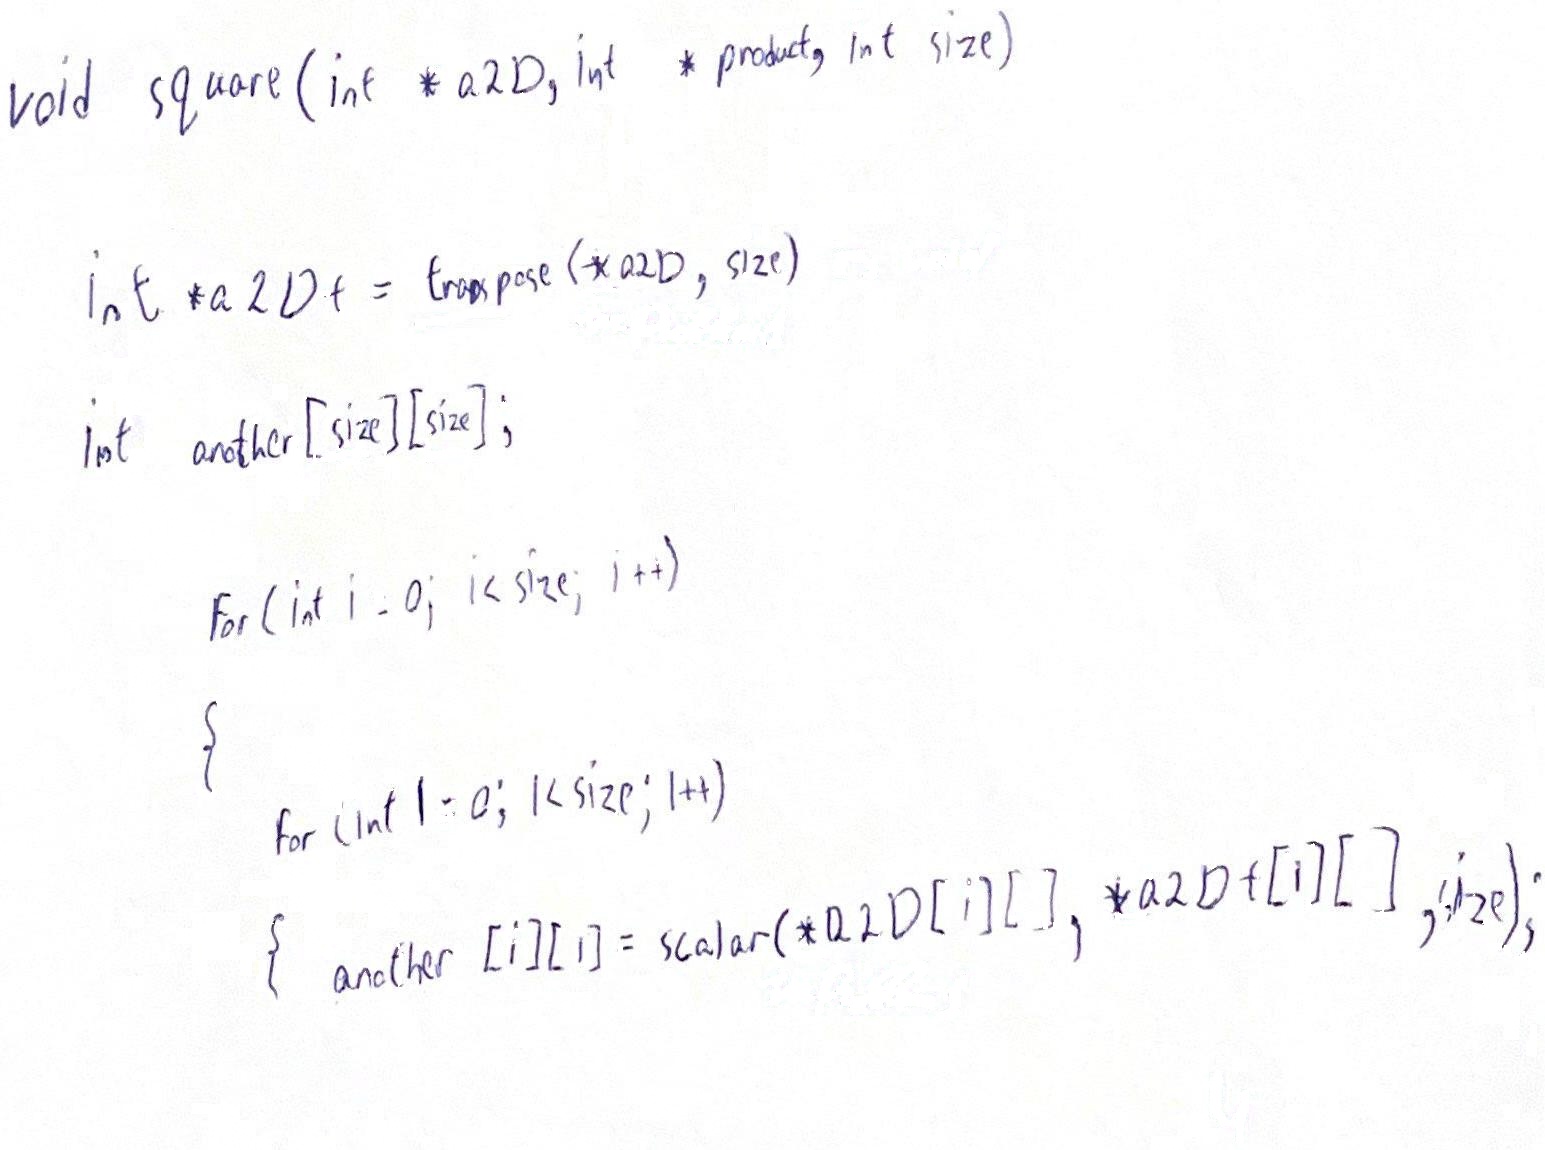 void square(int *a2D, int * product, int size)
int *a2Dt = transpose(*a2D, size)
int another[size][size];
For(int i = 0; i< size; i++)
{
For (int l = 0; l< size; l++)
{ another [i][l] = scalar(*a2D[i][], *a2Dt[l][], size);